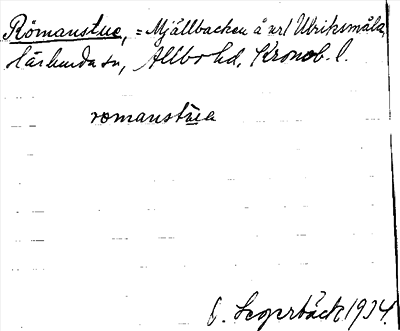 Römanstue, = Mjällbacken å nr 1 Ulriksmåla,
Härlunda sn, Allbo hd, Kronob. l.
romanstuɐ
1934.